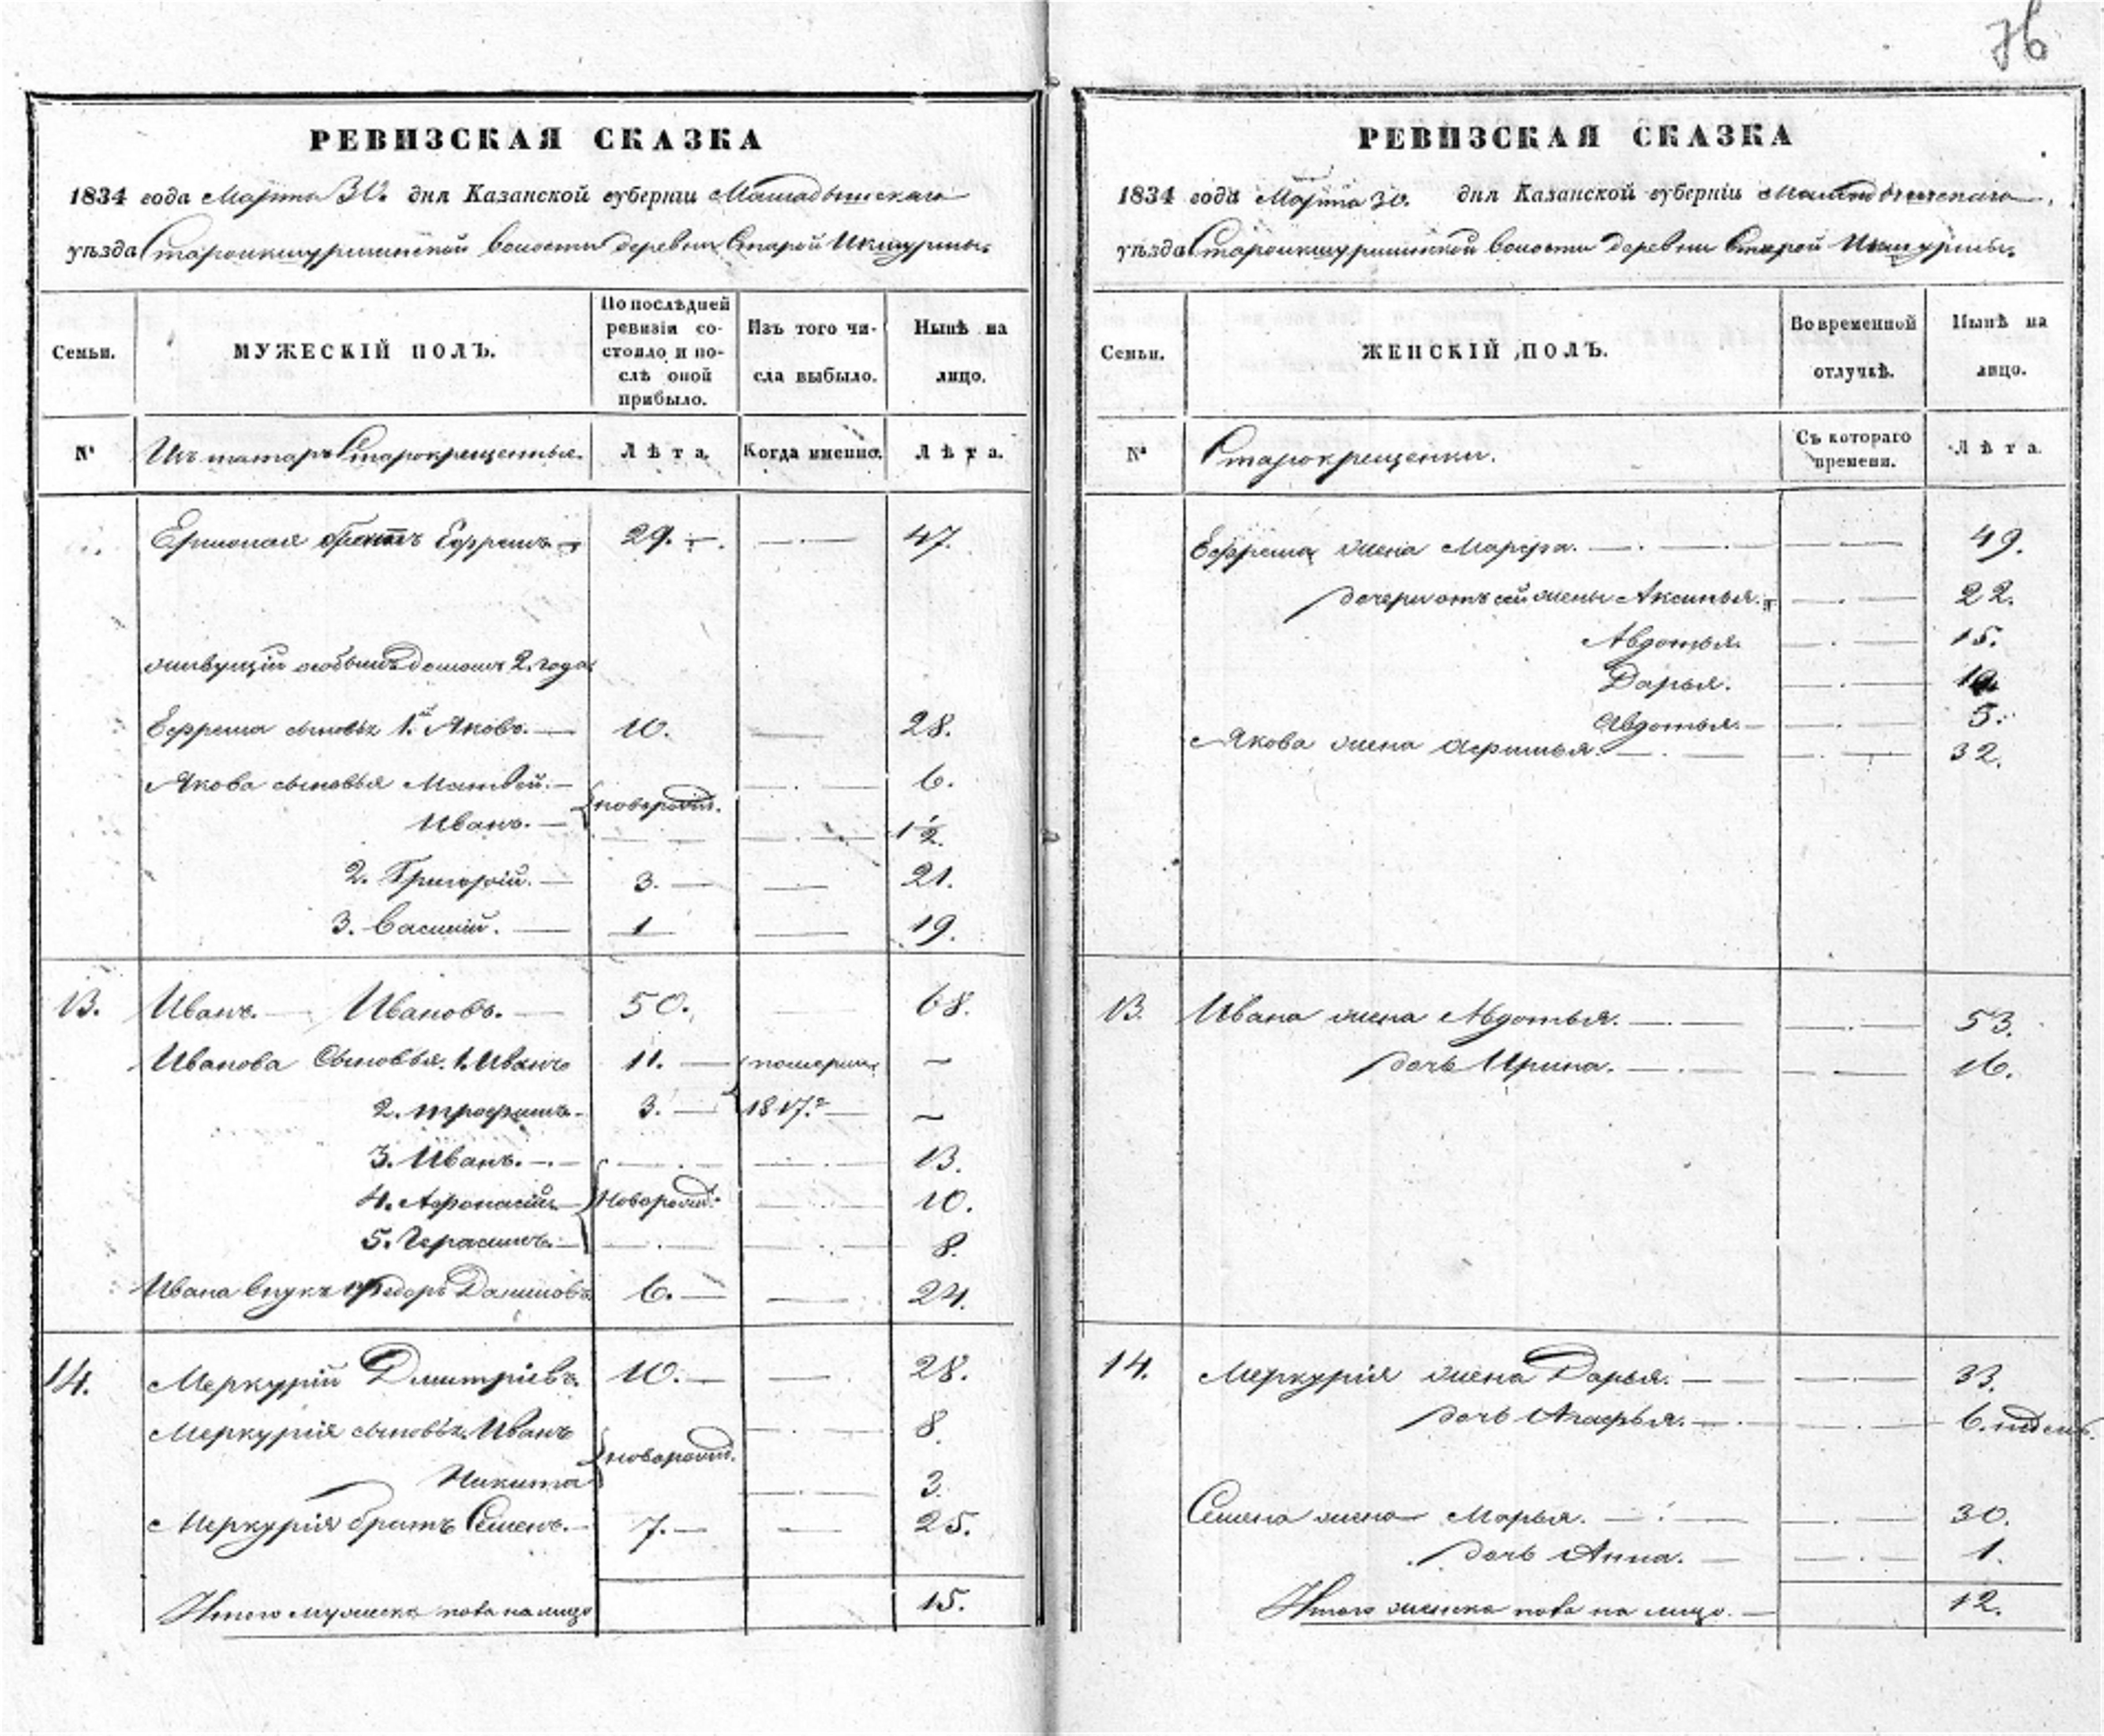 76
РЕВИЗСКАЯ СКАЗКА
1834 года Марта 30. дня Казанской губерніи Мамадышскаго
уѣзда Староикшурминской волости деревни Старой Икшурмы.
Семьи.
МУЖЕСКІЙ ПОЛЪ.
По послѣдней ревизіи со-
стояло и по-
слѣ оной
прибыло.
Изъ того чи-
сла выбыло.
Нынѣ на
лицо.
№
Изъ татаръ Старокрещенные.
Лѣта.
Когда именно.
Лѣта.
братъ Ефремъ. — 29. — — 47.
живущій особымъ домомъ 2. года
Ефрема сыновья 1й Яковъ. — 10. — 28.
Якова сыновья Матвей. — новорожд. — 6.
Иванъ. — — 1½.
2. Григорій. — 3. — — 21.
3. Василій. — 1 — 19.
13. Иванъ. — Ивановъ. — 50. — 68.
Иванова Сыновья. 1. Иванъ 11. — померли —
2. Трофимъ. 3. — 1817.г — —
3. Иванъ. — — — 13.
4. Афонасій — Новорожд. — 10.
5. Герасимъ. — — — 8.
Ивана внукъ Федоръ Даниловъ 6. — — 24.
14. Меркурій Дмитріевъ. 10. — — 28.
Меркурія сыновья. Иванъ новорожд. — 8.
Никита — 3.
Меркурія братъ Семенъ. — 7. — — 25.
Итого мужеска пола на лицо 15.
РЕВИЗСКАЯ СКАЗКА
1834 года Марта 30. дня Казанской губерніи Мамадышскаго
уѣзда Староикшурминской волости деревни Старой Икшурмы.
Семьи.
ЖЕНСКІЙ ПОЛЪ.
Во временной
отлучкѣ.
Нынѣ на
лицо.
№
Старокрещенки.
Съ котораго
времени.
Лѣта.
Ефрема жена Марфа. — — 49.
дочери отъ сей жены Аксинья. — 22.
Авдотья. — 15.
Дарья. —
Авдотья. — — 5.
Якова жена Афимья. — — 32.
13. Ивана жена Авдотья. — — 53.
дочь Ирина. — — 16.
14. Меркурія жена Дарья. — — 33.
дочь Агафья. — — 6. недель.
Семена жена Марья. — — 30.
дочь Анна. — — 1.
Итого женска пола на лицо. — 12.